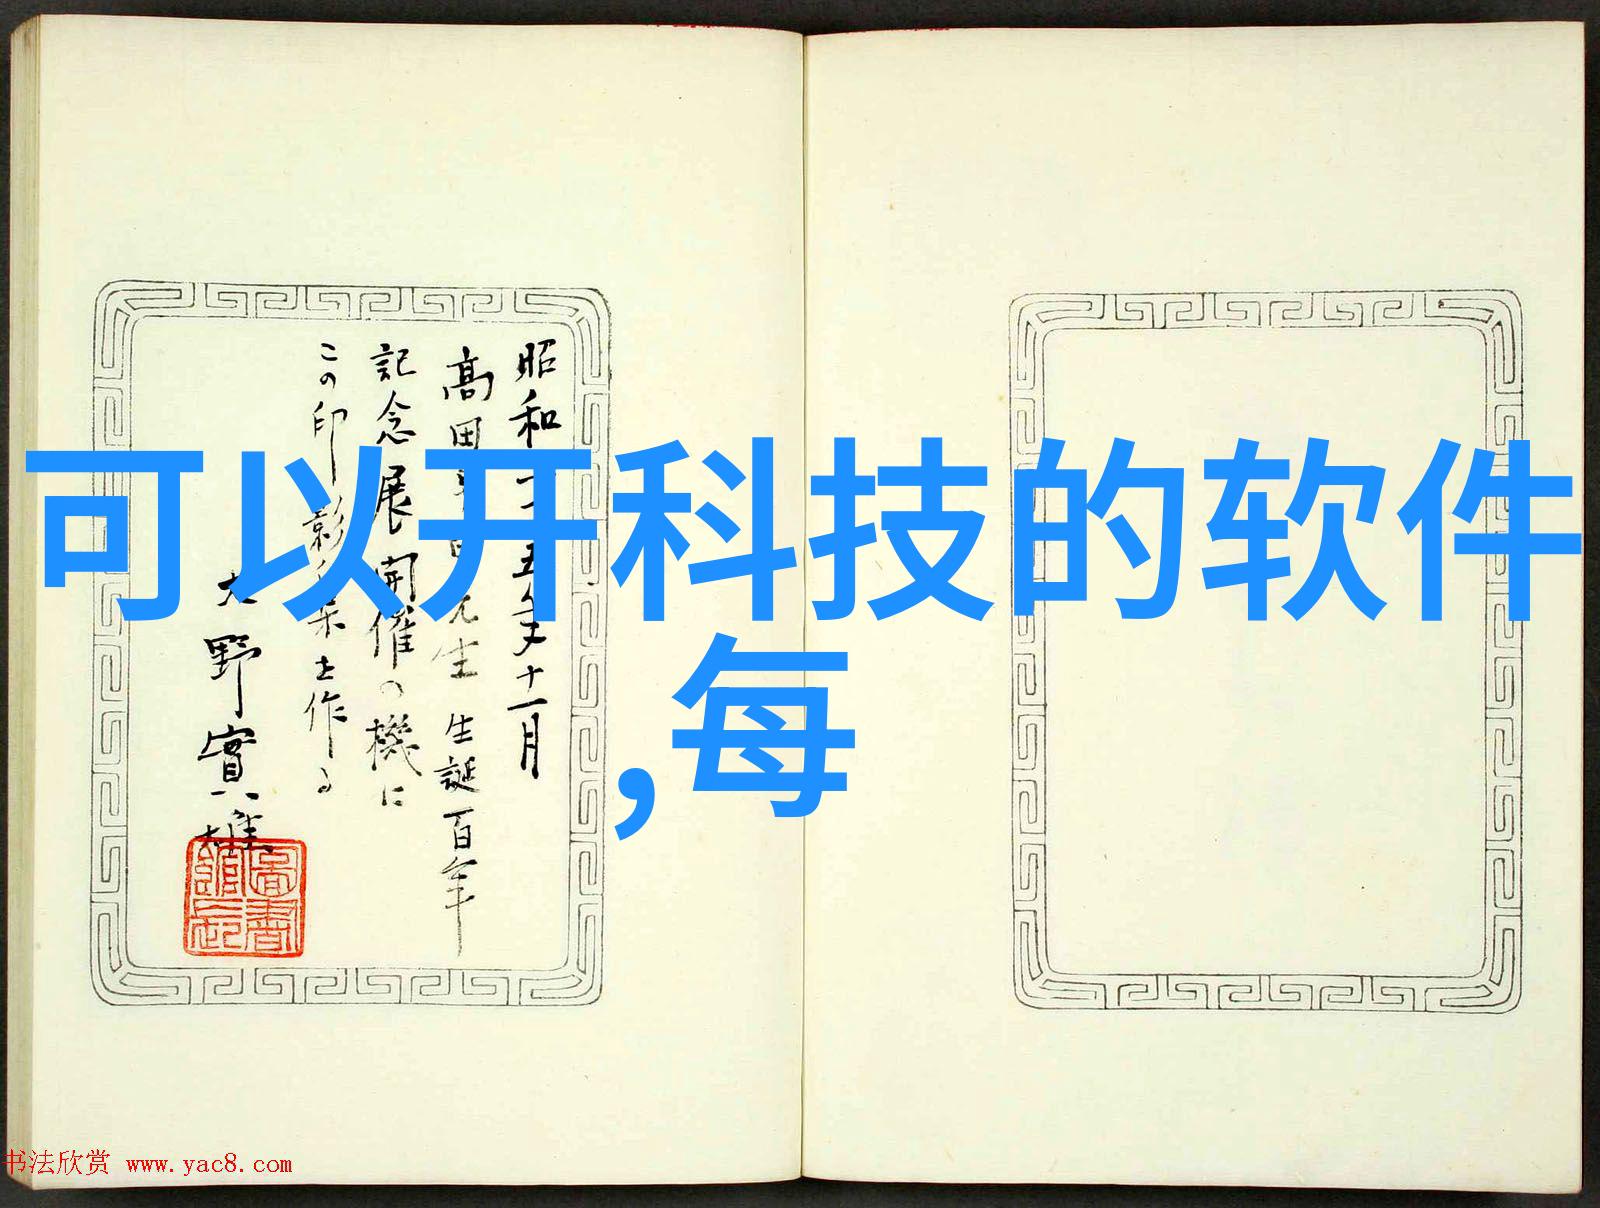 昭和一十五年十一月
高田
先生 生誕百年
記念展開催の機に
この印影
作る
大野實雄
圖書
館長
可以开科技的软件
,每
书法欣赏 www.yac8.com